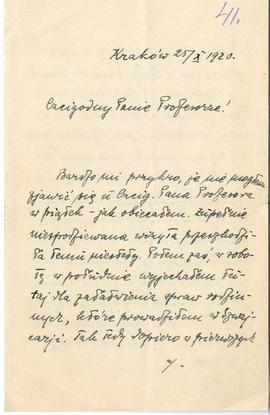 41.
Kraków 25/X 1920.
Czcigodny Panie Profesorze!
Bardzo mi przykro, że nie mogłem
zjawić się u Czcig. Pana Profesora
w piątek – jak obiecałem. Zupełnie
niespodziewana wizyta przeszkodzi-
ła temu niestety. Potem zaś, w sobo-
tę w południe wyjechałem tu-
taj dla załatwienia spraw rodzin-
nych, które prowadziłem w Szwaj-
carji. Tak tedy dopiero w pierwszych